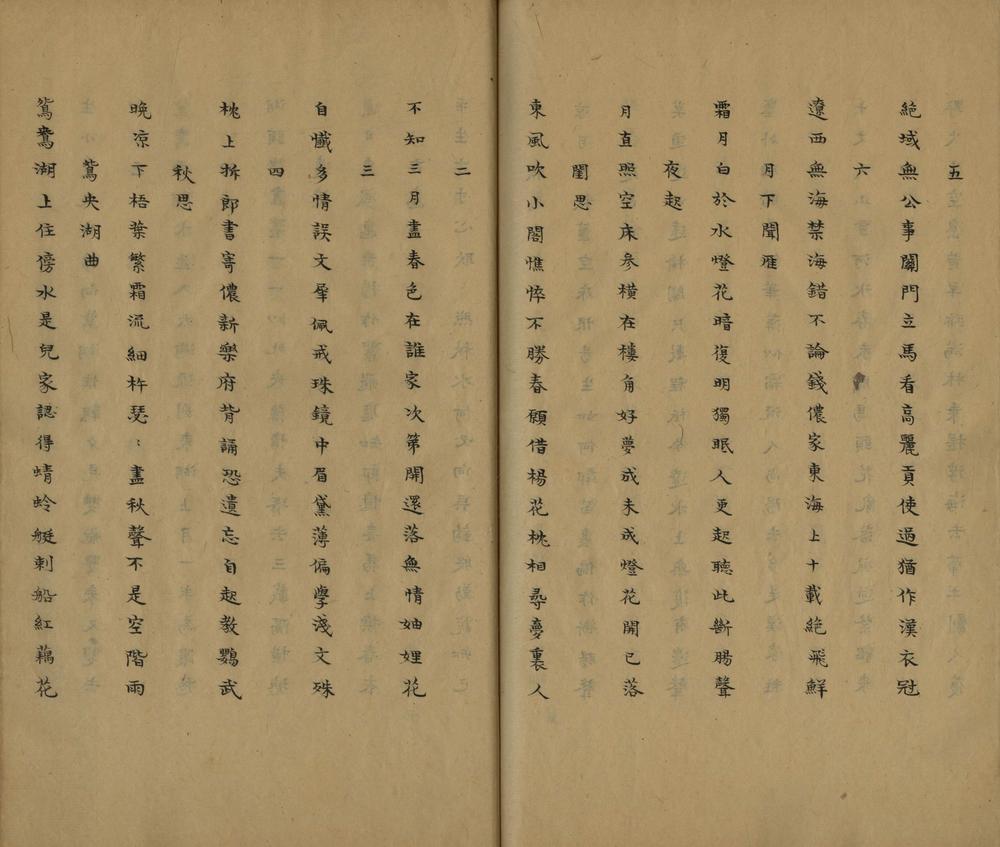 五
絕域無公事關門立馬看高麗貢使過猶作漢衣冠
六
遼西無海禁海錯不論錢儂家東海上十載絕飛鮮
月下聞雁
霜月白於水燈花暗復明獨眠人更起聽此斷腸聲
夜起
月直照空床參橫在樓角好夢成未成燈花開已落
閨思
東風吹小閣憔悴不勝春願借楊花枕相尋夢裏人
二
不知三月盡春色在誰家次第開還落無情妯娌花
三
自懺多情誤文犀佩戒珠鏡中眉黛薄偏學淺文殊
四
枕上拆郎書寄儂新樂府背誦恐遺忘自起教鸚武
秋思
晚涼下梧葉繁霜流細杵瑟〻盡秋聲不是空階雨
鴛央湖曲
鴛鴦湖上住傍水是兒家認得蜻蛉艇刺船紅藕花